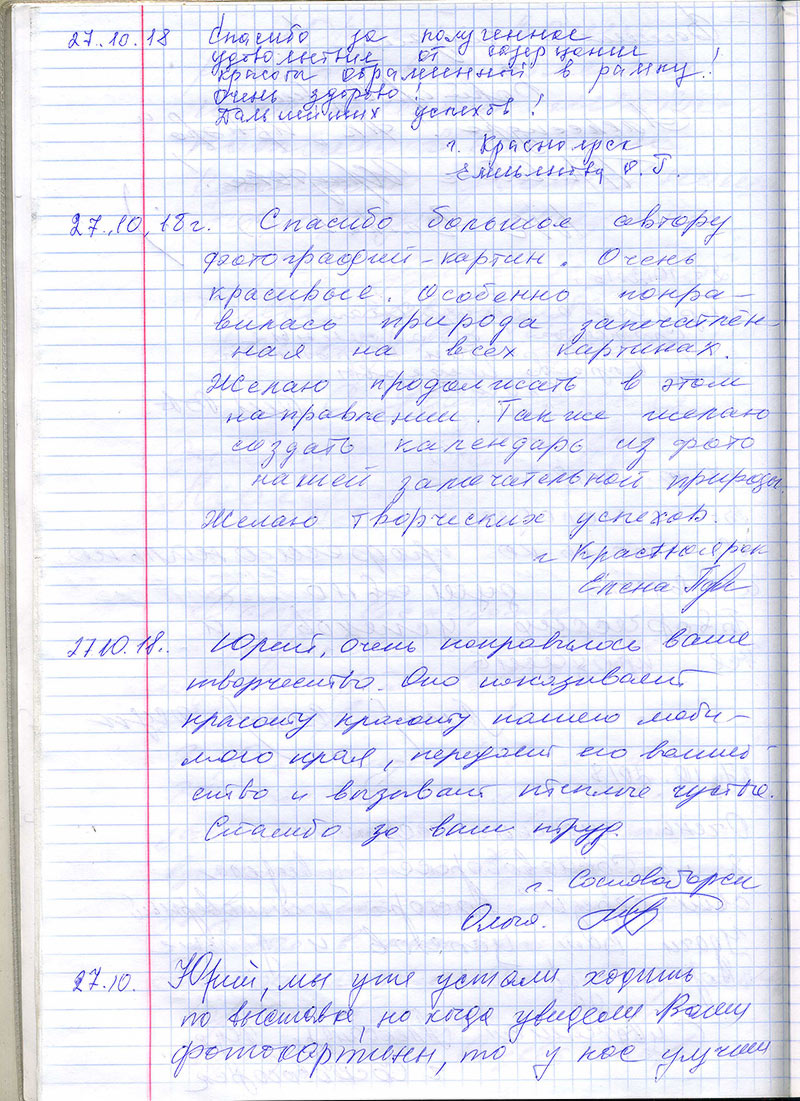 27.10.18 Спасибо за полученное
удовольствие от созерцании
красоты обрамленной в рамку!
Очень здорово!
Дальнейших успехов!
г. Красноярск
Емельянова О.Г.
27.10.18г. Спасибо большое автору
фотографий-картин. Очень
красивые. Особенно понра-
вилась природа запечатлён-
ная на всех картинах.
Желаю продолжать в этом
направлении. Также желаю
создать календарь из фото
нашей замечательной природы.
Желаю творческих успехов.
г Красноярск
Елена
27.10.18. Юрий, очень понравилось ваше
творчество. Оно показывает
красоту красоту нашего люби-
мого края, передает его волшеб-
ство и вызывает теплые чуства.
Спасибо за ваш труд.
г. Сосновоборск
Ольга.
27.10. Юрий, мы уже устали ходить
по выставке, но когда увидели Ваши
фотокартины, то у нас улучши